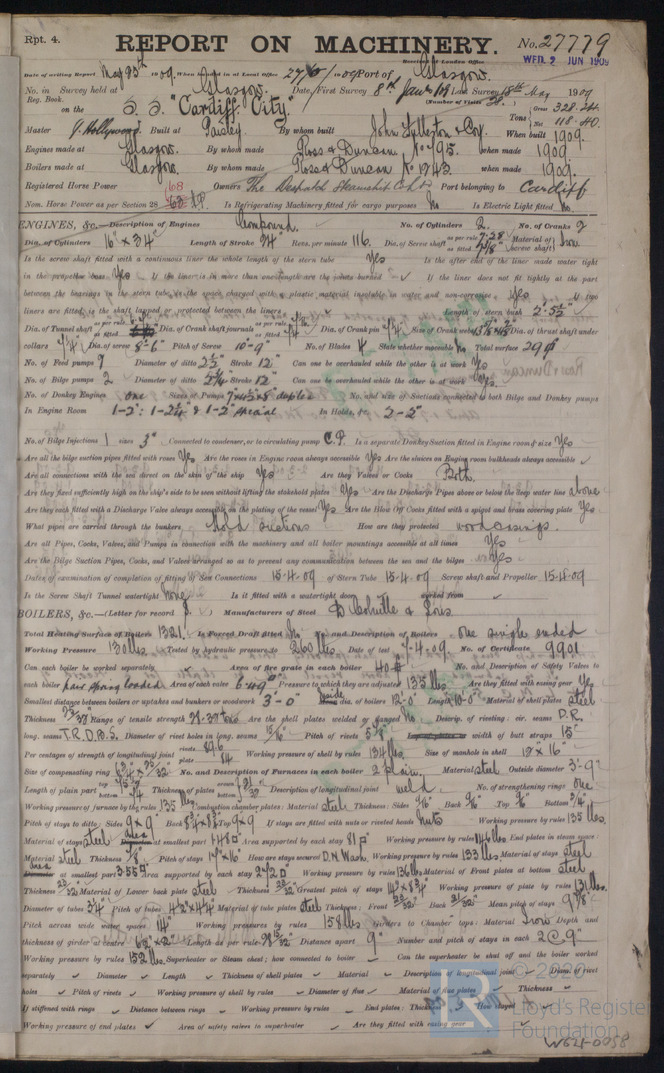 Rpt. 4.
REPORT ON MACHINERY.
No. 27779
Received at London Office WED. 2 JUN 1909
Date of writing Report May 25th 1909 When handed in at Local Office 27/5/1909 Port of Glasgow.
No. in Survey held at Glasgow. Date, First Survey 8th Jan. Last Survey 18th May 1909
Reg. Book. (Number of Visits 28.)
on the S. S. "Cardiff City." Tons Gross 328.24 Net 118.40
Master J. Hollywood Built at Paisley By whom built John Fullerton & Coy. When built 1909.
Engines made at Glasgow. By whom made Ross & Duncan. No 795. when made 1909.
Boilers made at Glasgow. By whom made Ross & Duncan No 1743. when made 1909.
Registered Horse Power Owners The Despatch Steamship Co Ltd Port belonging to Cardiff
Nom. Horse Power as per Section 28 68 Is Refrigerating Machinery fitted for cargo purposes No Is Electric Light fitted No
ENGINES, &c.—Description of Engines Compound. No. of Cylinders 2. No. of Cranks 2
Dia. of Cylinders 16" x 34" Length of Stroke 24" Revs. per minute 116. Dia. of Screw shaft as per rule 7.28 as fitted Material of screw shaft Iron
Is the screw shaft fitted with a continuous liner the whole length of the stern tube Yes Is the after end of the liner made water tight
in the propeller boss Yes If the liner is in more than one length are the joints burned If the liner does not fit tightly at the part
between the bearings in the stern tube, is the space charged with a plastic material insoluble in water and non-corrosive Yes If two
liners are fitted, is the shaft lapped or protected between the liners Length of stern bush 2'-5½"
Dia. of Tunnel shaft as per rule as fitted Dia. of Crank shaft journals as per rule as fitted Dia. of Crank pin 7¼" Size of Crank webs Dia. of thrust shaft under
collars 7¼" Dia. of screw 8'-6" Pitch of Screw 10'-9" No. of Blades 4 State whether moveable No Total surface 29
No. of Feed pumps 2 Diameter of ditto 2½" Stroke 12" Can one be overhauled while the other is at work Yes
No. of Bilge pumps 2 Diameter of ditto Stroke 12" Can one be overhauled while the other is at work Yes.
No. of Donkey Engines one Sizes of Pumps duplex No. and size of Suctions connected to both Bilge and Donkey pumps
In Engine Room 1-2": 1-2¼" & 1-2" special In Holds, &c. 2-2"
No. of Bilge Injections 1 sizes 3" Connected to condenser, or to circulating pump C.P. Is a separate Donkey Suction fitted in Engine room & size Yes
Are all the bilge suction pipes fitted with roses Yes Are the roses in Engine room always accessible Yes Are the sluices on Engine room bulkheads always accessible
Are all connections with the sea direct on the skin of the ship Yes Are they Valves or Cocks Both.
Are they fixed sufficiently high on the ship's side to be seen without lifting the stokehold plates Yes Are the Discharge Pipes above or below the deep water line above
Are they each fitted with a Discharge Valve always accessible on the plating of the vessel Yes Are the Blow Off Cocks fitted with a spigot and brass covering plate Yes
What pipes are carried through the bunkers hold suctions How are they protected wood casings.
Are all Pipes, Cocks, Valves, and Pumps in connection with the machinery and all boiler mountings accessible at all times Yes
Are the Bilge Suction Pipes, Cocks, and Valves arranged so as to prevent any communication between the sea and the bilges Yes
Dates of examination of completion of fitting of Sea Connections 15-4-09 of Stern Tube 15-4-09 Screw shaft and Propeller 15-4-09
Is the Screw Shaft Tunnel watertight None Is it fitted with a watertight door worked from
BOILERS, &c.—(Letter for record S.) Manufacturers of Steel D. Colville & Sons.
Total Heating Surface of Boilers 1321. Is Forced Draft fitted No No. and Description of Boilers one single ended
Working Pressure 130 lbs. Tested by hydraulic pressure to 260 lbs Date of test 7-4-09. No. of Certificate 9901
Can each boiler be worked separately Area of fire grate in each boiler 40 No. and Description of Safety Valves to
each boiler pair spring loaded Area of each valve 6.49 Pressure to which they are adjusted 135 lbs Are they fitted with easing gear Yes
Smallest distance between boilers or uptakes and bunkers or woodwork 3'-0" Inside dia. of boilers 12'-0" Length 10'-0" Material of shell plates steel
Thickness Range of tensile strength Are the shell plates welded or flanged No Descrip. of riveting: cir. seams D.R.
long. seams T.R.D.B.S. Diameter of rivet holes in long. seams 15/16" Pitch of rivets width of butt straps 15"
Per centages of strength of longitudinal joint rivets 89.6 plate 84 Working pressure of shell by rules 134 lbs. Size of manhole in shell 12" x 16"
Size of compensating ring No. and Description of Furnaces in each boiler 2 plain Material steel Outside diameter 3'-9"
Length of plain part top bottom Thickness of plates crown bottom Description of longitudinal joint weld No. of strengthening rings one
Working pressure of furnace by the rules 135 lbs Combustion chamber plates: Material steel Thickness: Sides 9/16" Back 9/16" Top 9/16" Bottom 3/4"
Pitch of stays to ditto: Sides 9 x 9" Back Top 9 x 9" If stays are fitted with nuts or riveted heads nuts Working pressure by rules 135 lbs.
Material of stays steel at smallest part 1.48 Area supported by each stay 81 Working pressure by rules 146 lbs End plates in steam space:
Material steel Thickness Pitch of stays How are stays secured D.N. Wash. Working pressure by rules 133 lbs Material of stays steel
at smallest part 3.55 Area supported by each stay Working pressure by rules Material of Front plates at bottom steel
Thickness Material of Lower back plate steel Thickness Greatest pitch of stays Working pressure of plate by rules 131 lbs.
Diameter of tubes 3¼" Pitch of tubes Material of tube plates steel Thickness: Front Back Mean pitch of stays
Pitch across wide water spaces 14" Working pressures by rules 158 lbs Girders to Chamber tops: Material Iron Depth and
thickness of girder at centre Length as per rule Distance apart 9" Number and pitch of stays in each 2 @ 9"
Working pressure by rules 152 lbs Superheater or Steam chest; how connected to boiler Can the superheater be shut off and the boiler worked
separately Diameter Length Thickness of shell plates Material Description of longitudinal joint Diam. of rivet
holes Pitch of rivets Working pressure of shell by rules Diameter of flue Material of flue plates Thickness
If stiffened with rings Distance between rings Working pressure by rules End plates: Thickness How stayed
Working pressure of end plates Area of safety valves to superheater Are they fitted with easing gear
© 2020
LR
Lloyd's Register
Foundation
W621-0058